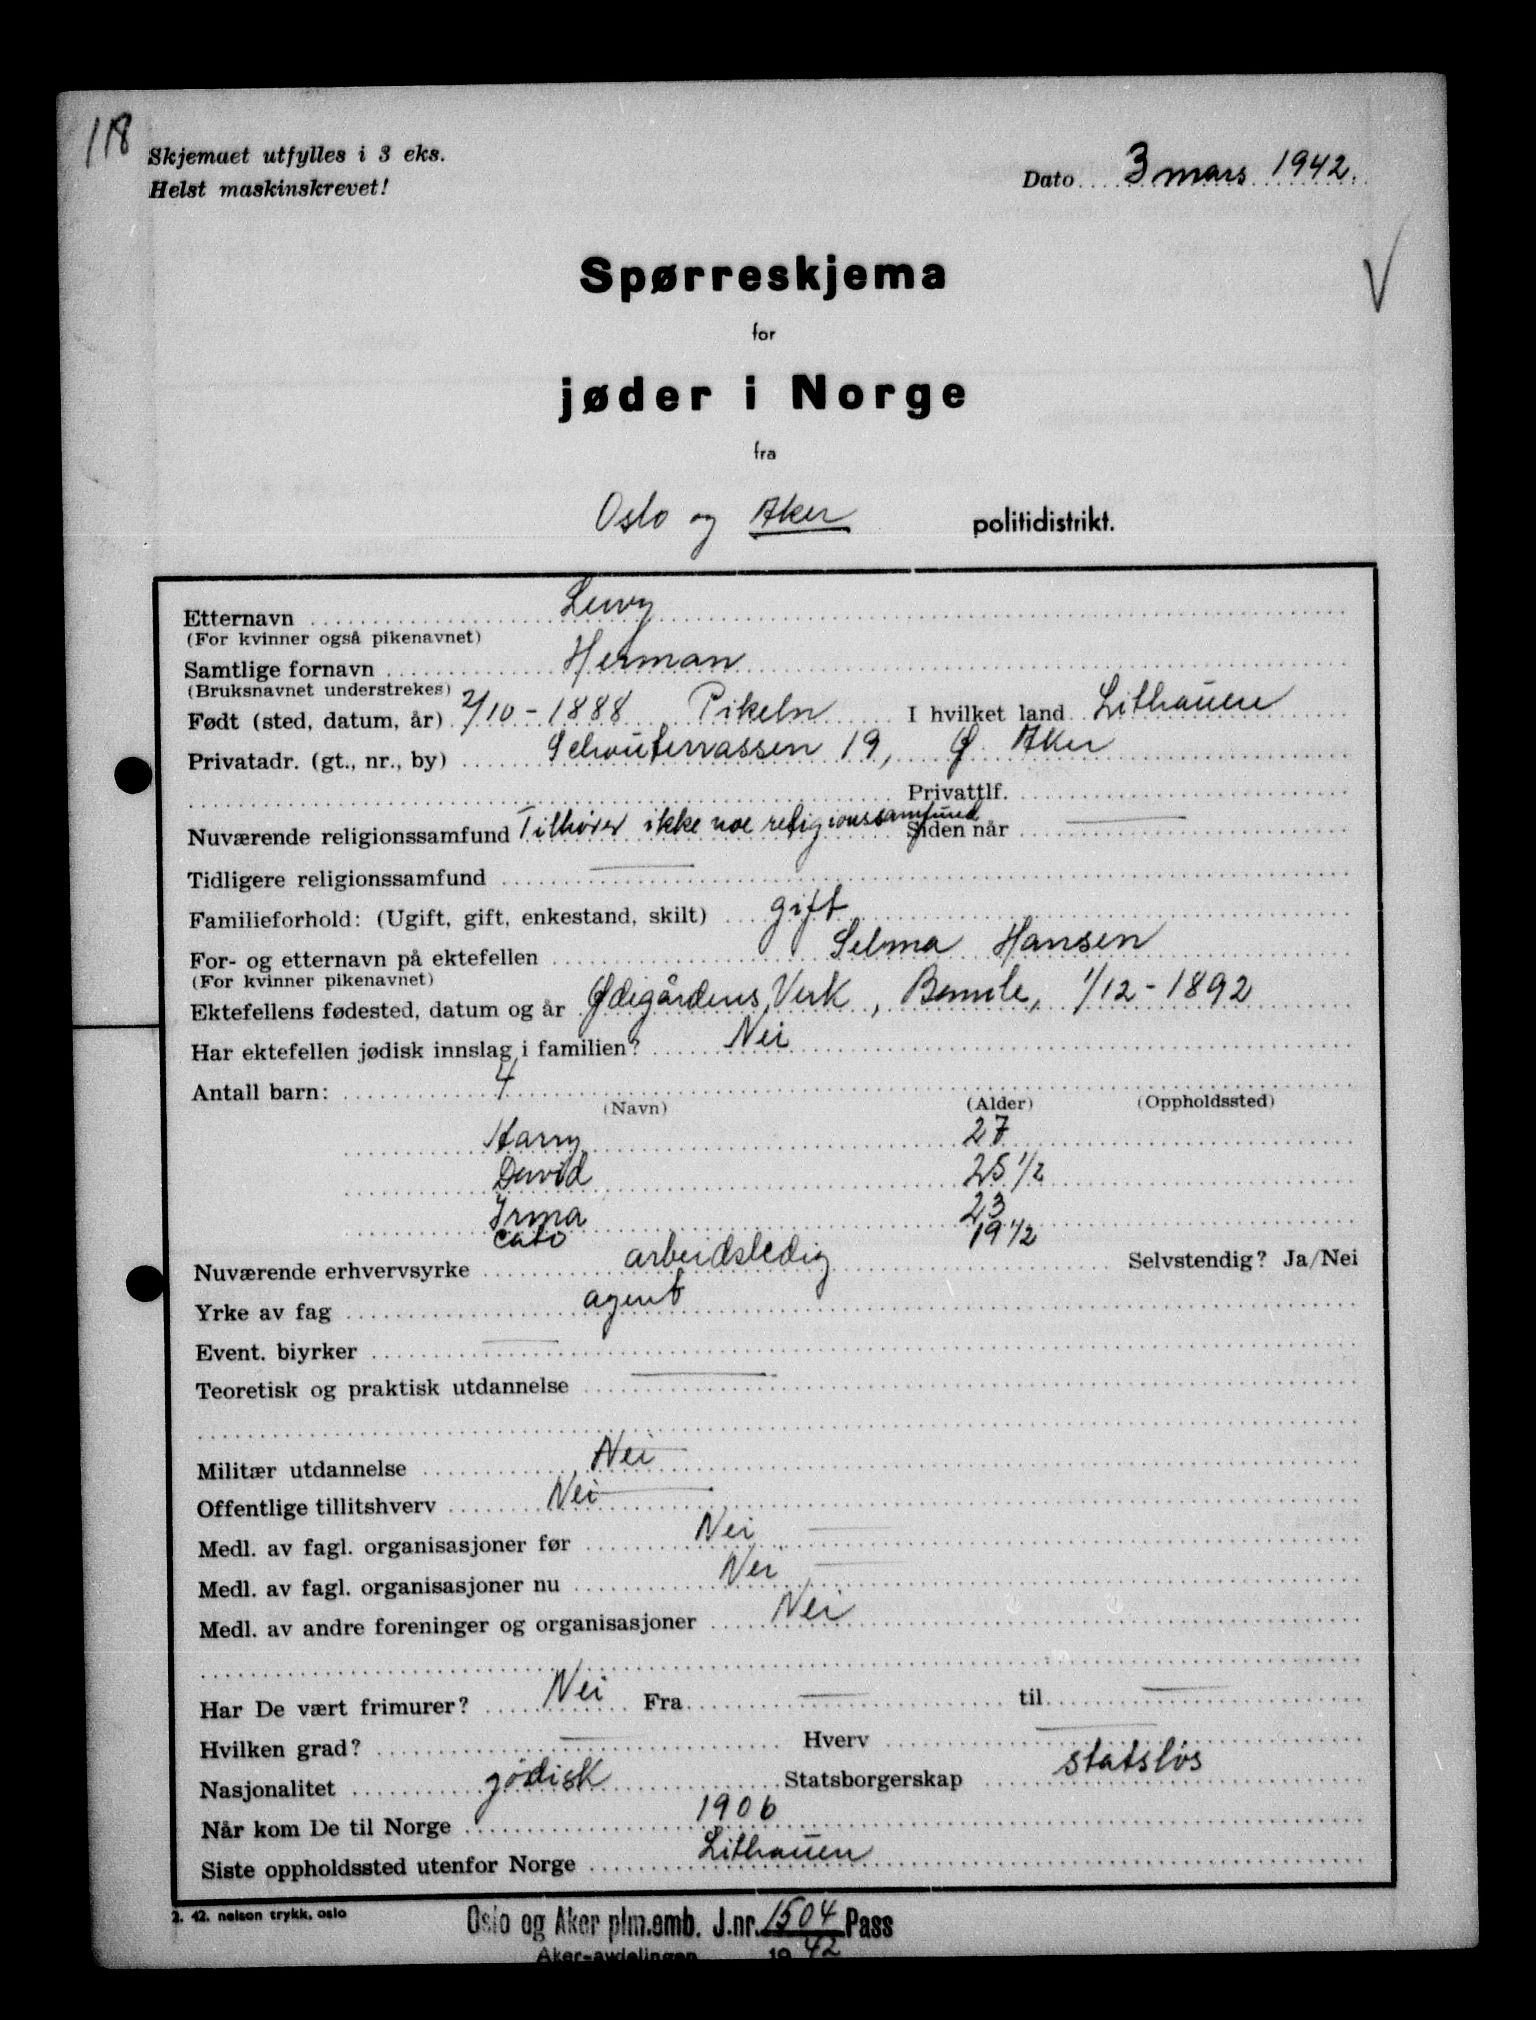 118
Skjemaet utfylles i 3 eks.
Helst maskinskrevet!
Dato 3 mars 1942.
Spørreskjema
for
jøder i Norge
fra
Oslo og Aker politidistrikt.
Etternavn Levy
(For kvinner også pikenavnet)
Samtlige fornavn Herman
(Bruksnavnet understrekes)
Født (sted, datum, år) 2/10 - 1888 Pikeln I hvilket land Lithauen
Privatadr. (gt., nr., by) Schouterrassen 19, Ø. Aker
Privattlf.
Nuværende religionssamfund Tilhører ikke noe religionssamfund Siden når
Tidligere religionssamfund
Familieforhold: (Ugift, gift, enkestand, skilt) gift
For- og etternavn på ektefellen Selma Hansen
(For kvinner pikenavnet)
Ektefellens fødested, datum og år Ødegårdens Verk, Bamle, 1/12 - 1892
Har ektefellen jødisk innslag i familien? Nei
Antall barn: 4
(Navn) (Alder) (Oppholdssted)
Harry 27
David 25 1/2
Irma 23
Cato 19 1/2
Nuværende erhvervsyrke arbeidsledig Selvstendig? Ja/Nei
Yrke av fag agent
Event. biyrker
Teoretisk og praktisk utdannelse
Militær utdannelse Nei
Offentlige tillitshverv Nei
Medl. av fagl. organisasjoner før Nei
Medl. av fagl. organisasjoner nu Nei
Medl. av andre foreninger og organisasjoner Nei
Har De vært frimurer? Nei Fra til
Hvilken grad? Hverv
Nasjonalitet jødisk Statsborgerskap statsløs
Når kom De til Norge 1906
Siste oppholdssted utenfor Norge Lithauen
2. 42. nelson trykk, oslo
Oslo og Aker plm.emb. J.nr. 1504 Pass
Aker-avdelingen 1942